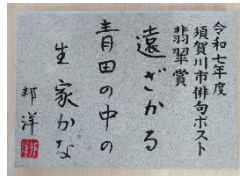 令和七年度
須賀川市俳句ポスト
翡翠賞
遠ざかる
青田の中の
生家かな
邦洋